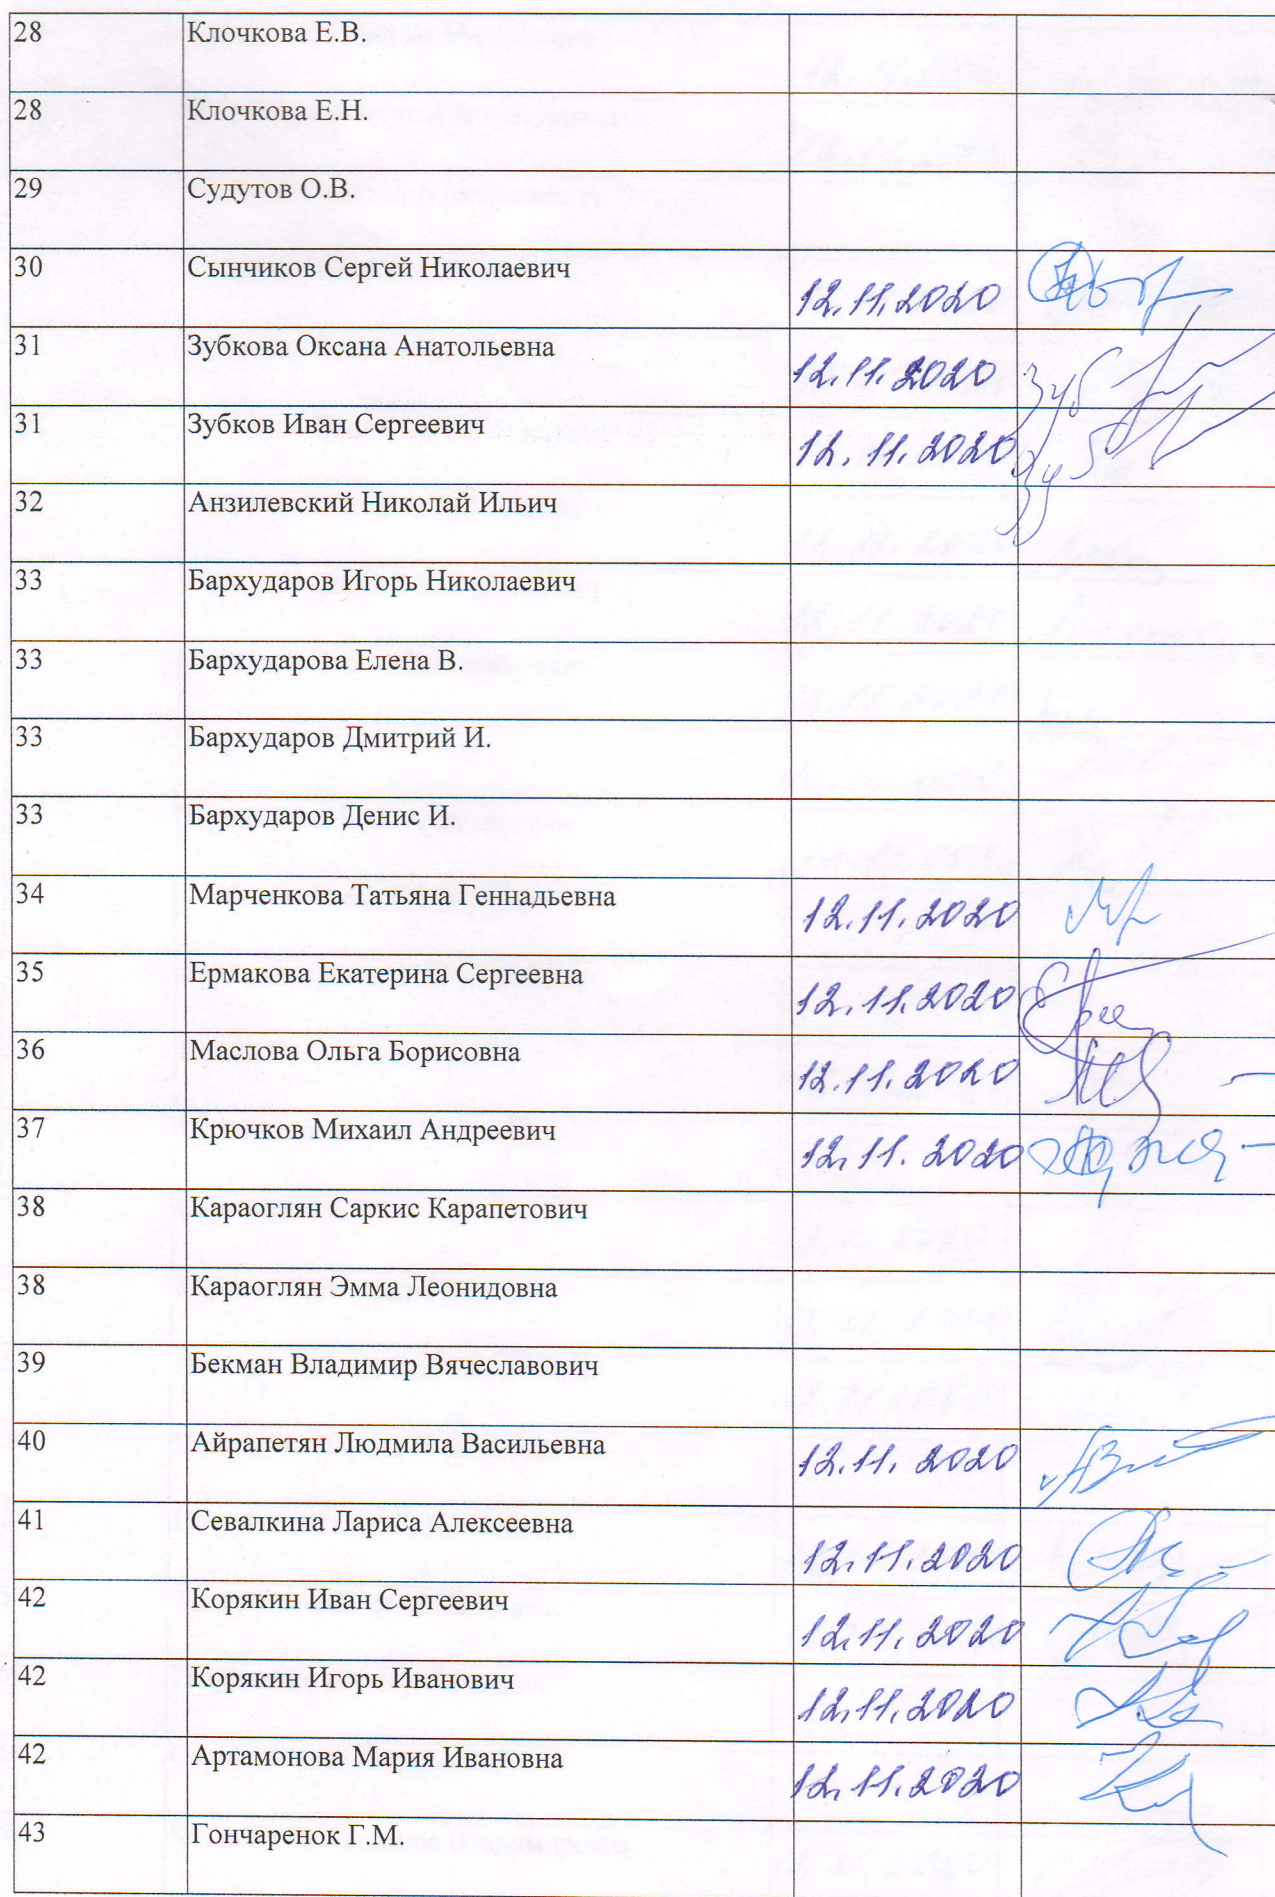 28 Клочкова Е.В.
28 Клочкова Е.Н.
29 Судутов О.В.
30 Сынчиков Сергей Николаевич 12.11.2020
31 Зубкова Оксана Анатольевна 12.11.2020 Зуб
31 Зубков Иван Сергеевич 12.11.2020
32 Анзилевский Николай Ильич
33 Бархударов Игорь Николаевич
33 Бархударова Елена В.
33 Бархударов Дмитрий И.
33 Бархударов Денис И.
34 Марченкова Татьяна Геннадьевна 12.11.2020
35 Ермакова Екатерина Сергеевна 12.11.2020
36 Маслова Ольга Борисовна 12.11.2020
37 Крючков Михаил Андреевич 12.11.2020
38 Караоглян Саркис Карапетович
38 Караоглян Эмма Леонидовна
39 Бекман Владимир Вячеславович
40 Айрапетян Людмила Васильевна 12.11.2020
41 Севалкина Лариса Алексеевна 12.11.2020
42 Корякин Иван Сергеевич 12.11.2020
42 Корякин Игорь Иванович 12.11.2020
42 Артамонова Мария Ивановна 12.11.2020
43 Гончаренок Г.М.